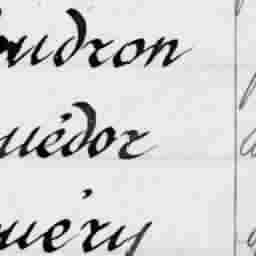 oudron
uédor
uéry